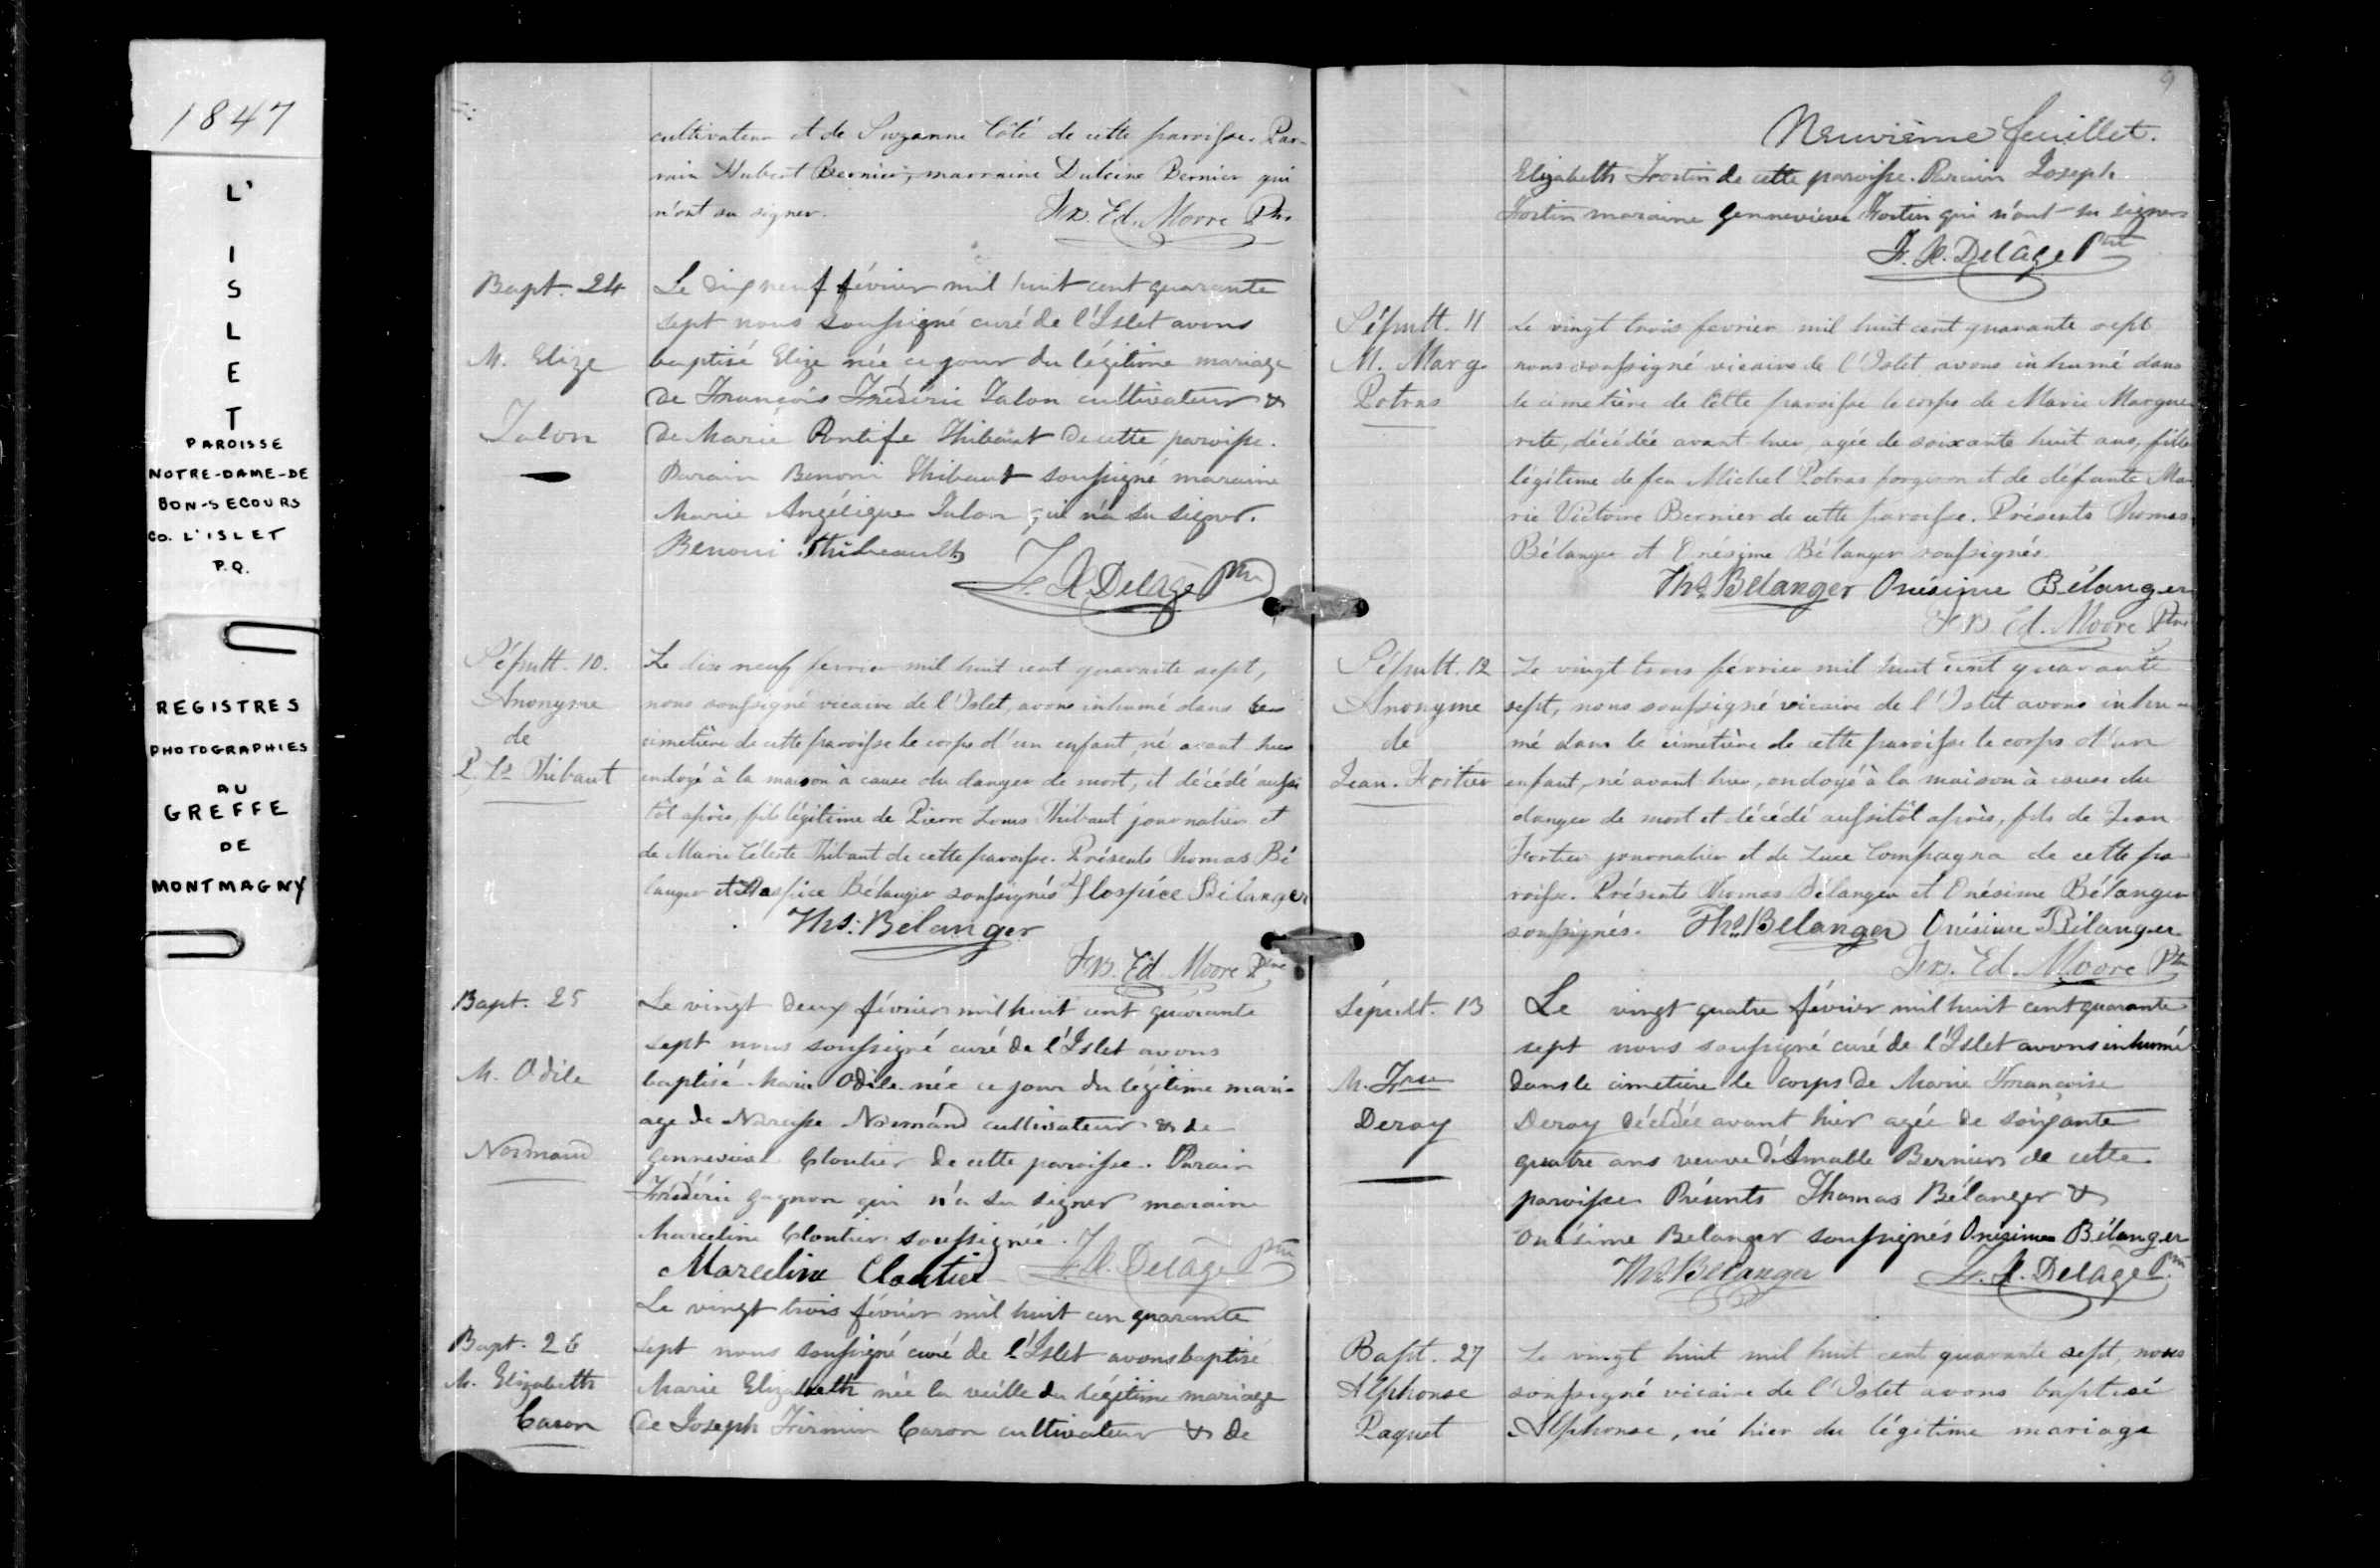 1847
L'
I
S
L
E
T
PAROISSE
NOTRE-DAME-DE
BON-SECOURS
CO. L'ISLET
P.Q.
REGISTRES
PHOTOGRAPHIES
AU
GREFFE
DE
MONTMAGNY
cultivateur et de Suzanne Côté de cette paroisse. Par-
rain Hubert Bernier, marraine Dulcine Bernier qui
n'ont su signer. Frs. Ed. Moore Ptre
Bapt. 24
M. Elize
Talon
Le dix neuf février mil huit cent quarante
sept nous soussigné curé de l'Islet avons
baptisé Elize née ce jour du légitime mariage
de François Frédéric Talon cultivateur &
de Marie Pontife Thibault de cette paroisse.
Parain Benoni Thibaut soussigné maraine
Marie Angélique Talon qui n'a su signer.
Benoni Thibeault F. X. Delâge Ptre
Sépult. 10.
Anonyme
de
P. Ls Thibaut
Le dix neuf fevrier mil huit cent quarante sept,
nous soussigné vicaire de l'Islet, avons inhumé dans le
cimetière de cette paroisse le corps d'un enfant né avant hier
ondoyé à la maison à cause du danger de mort, et décédé aussi
tôt après, fils légitime de Pierre Louis Thibaut journalier et
de Marie Céleste Thibaut de cette paroisse. Présents Thomas Bé
langer et Hospice Bélanger soussignés Hospice Bélanger
Ths. Bélanger
Frs. Ed. Moore Ptre
Bapt. 25
M. Odile
Normand
Le vingt deux février mil huit cent quarante
sept nous soussigné curé de l'Islet avons
baptisé Marie Odile née ce jour du légitime mari-
age de Narcisse Normand cultivateur & de
Genneviève Cloutier de cette paroisse. Parain
Frédéric Gagnon qui n'a su signer maraine
Marceline Cloutier soussignée.
Marceline Cloutier F. X. Delâge Ptre
Bapt. 26
M. Elizabeth
Caron
Le vingt trois février mil huit cen quarante
sept nous soussigné curé de l'Islet avons baptisé
Marie Elizabeth née la veille du légitime mariage
de Joseph Firmin Caron cultivateur & de
9
Neuvième feuillet.
Elizabeth Fortin de cette paroisse. Parain Joseph
Fortin maraine Genneviève Fortin qui n'ont su signer
F. X. Delâge Ptre
Sépult. 11
M. Marg.
Potras
Le vingt trois fevrier mil huit cent quarante sept
nous soussigné vicaire de l'Islet avons inhumé dans
le cimetière de cette paroisse le corps de Marie Margue-
rite, décédée avant hier, agée de soixante huit ans, fille
légitime de feu Michel Potras forgeron et de défunte Ma-
rie Victoire Bernier de cette paroisse. Présents Thomas
Bélanger et Onésime Bélanger soussignés
Ths. Bélanger Onésime Bélanger
Frs. Ed. Moore Ptre
Sépult. 12
Anonyme
de
Jean. Fortier
Le vingt trois février mil huit cent quarante
sept, nous soussigné vicaire de l'Islet avons inhu-
mé dans le cimetière de cette paroisse le corps d'un
enfant, né avant hier, ondoyé à la maison à cause du
danger de mort et décédé aussitôt après, fils de Jean
Fortier journalier et de Luce Compagna de cette pa-
roisse. Présents Thomas Bélanger et Onésime Bélanger
soussignés. Ths. Bélanger Onésime Bélanger
Frs. Ed. Moore Ptre
Sépult. 13
M. Frse
Deroy
Le vingt quatre février mil huit cent quarante
sept nous soussigné curé de l'Islet avons inhumé
dans le cimetière le corps de Marie Françoise
Deroy décédée avant hier agée de soixante
quatre ans veuve d'Amable Bernier de cette
paroisse Présents Thomas Bélanger &
Onésime Belanger soussignés Onésime Bélanger
Ths. Bélanger F. X. Delâge Ptre
Bapt. 27
Alphonse
Paquet
Le vingt huit mil huit cent quarante sept, nous
soussigné vicaire de l'Islet avons baptisé
Alphonse, né hier du légitime mariage